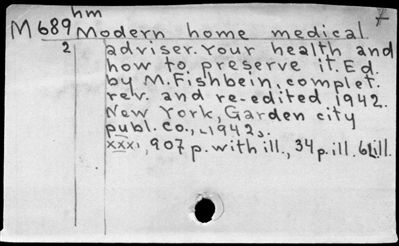 hm
M689 Modern home medical 7
2 adviser. Your health and
how to preserve it. Ed.
by M. Fishbein, complet.
rev. and re-edited 1942.
New York, Garden city
publ. Co., [1942].
xxxi, 907 p. with ill., 34 p. ill.